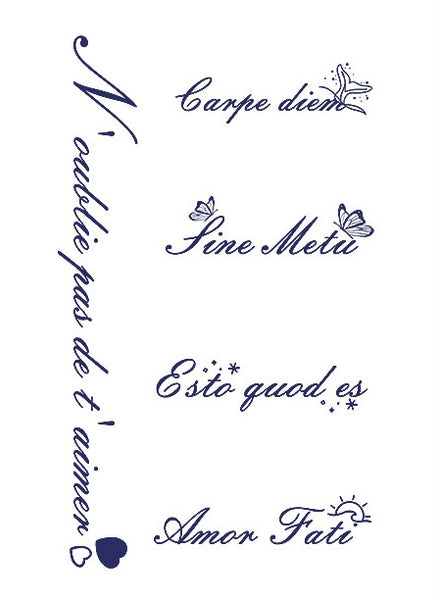 N'oublie pas de t'aimer
Carpe diem
Sine Metu
Esto quod es
Amor Fati